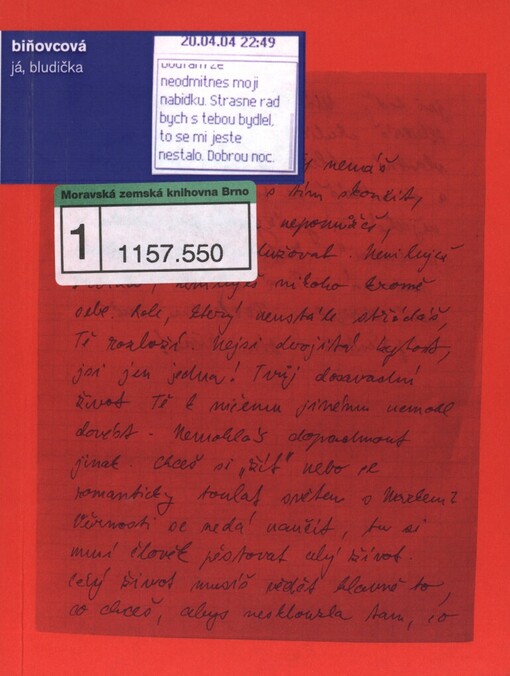 biňovcová
já, bludička
20.04.04 22:49
doufam ze
neodmitnes moji
nabidku. Strasne rad
bych s tebou bydlel,
to se mi jeste
nestalo. Dobrou noc.
Moravská zemská knihovna Brno
1
1157.550
nemáš
s tím skončit,
nepomůžeš,
Nemiluješ
nikoho kromě
sebe. Role, který neustále střádáš,
Tě rozloží. Nejsi dvojitá bytost,
jsi jen jedna! Tvůj dosavadní
život Tě k ničemu jinému nemohl
dovést. Nemohlas dopadnout
jinak. Chceš si „žít" nebo se
romanticky toulat světem s Karlem?
Věrnosti se nedá naučit, tu si
musí člověk pěstovat celý život.
Celý život musíš vědět hlavně to,
co chceš, abys nesklouzla tam, co